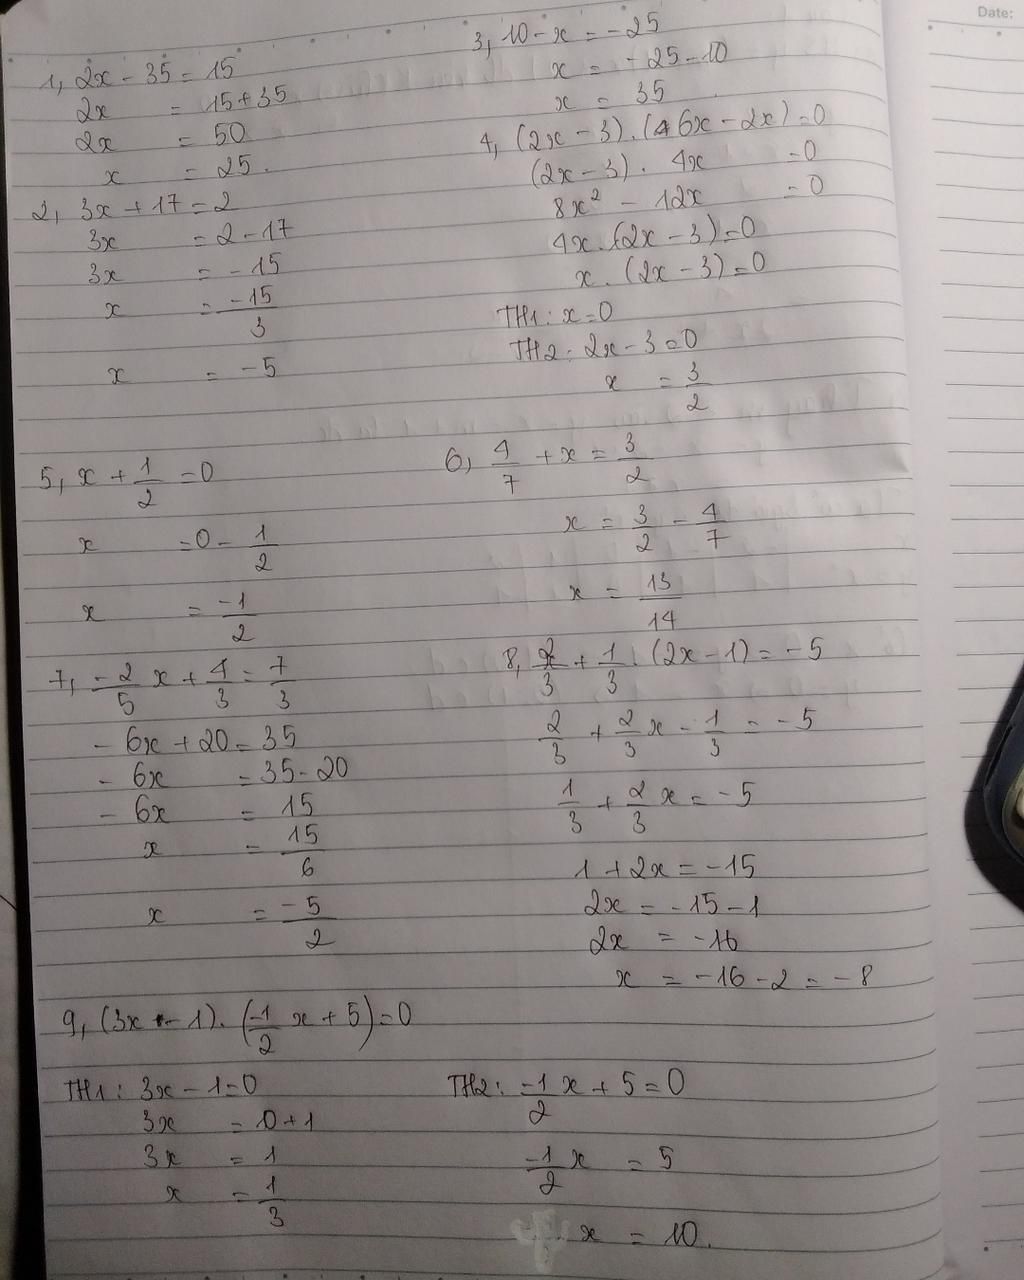 Date:
1, 2x - 35 = 15
2x = 15 + 35
2x = 50
x = 25.
2, 3x + 17 = 2
3x = 2 - 17
3x = -15
x = -15/3
x = -5
3, 10 - x = -25
x = -25 - 10
x = 35
4, (2x - 3).(6x - 2x) = 0
(2x - 3). 4x = 0
8x² - 12x = 0
4x.(2x - 3) = 0
x. (2x - 3) = 0
TH1: x = 0
TH2: 2x - 3 = 0
x = 3/2
5, x + 1/2 = 0
x = 0 - 1/2
x = -1/2
6, 4/7 + x = 3/2
x = 3/2 - 4/7
x = 13/14
7, -2/5 x + 4/3 = 7/3
- 6x + 20 = 35
- 6x = 35 - 20
- 6x = 15
x = 15/6
x = -5/2
8, 2/3 + 1/3 . (2x - 1) = -5
2/3 + 2/3 x - 1/3 = -5
1/3 + 2/3 x = -5
1 + 2x = -15
2x = -15 - 1
2x = -16
x = -16 - 2 = -8
9, (3x - 1). (-1/2 x + 5) = 0
TH1: 3x - 1 = 0
3x = 0 + 1
3x = 1
x = 1/3
TH2: -1/2 x + 5 = 0
-1/2 x = 5
x = 10.